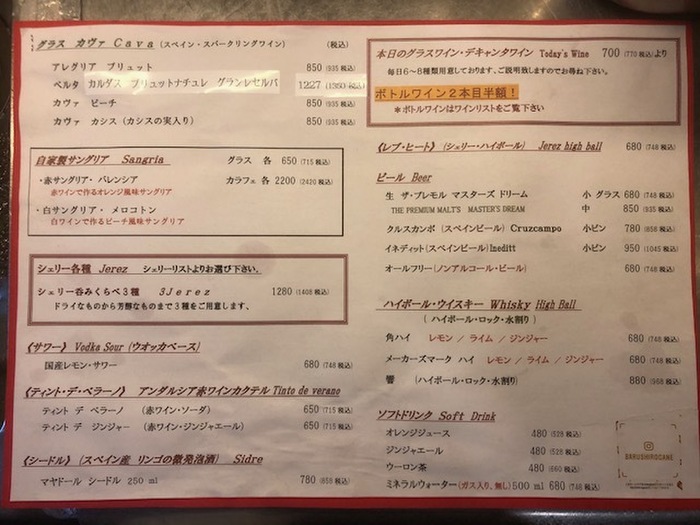 グラス カヴァ Cava (スペイン・スパークリングワイン) (税込)
アレグリア ブリュット 850 (935 税込)
ベルタ カルダス ブリュットナチュレ グランレセルバ 1227 (1350 税込)
カヴァ ピーチ 850 (935 税込)
カヴァ カシス (カシスの実入り) 850 (935 税込)
自家製サングリア Sangria グラス 各 650 (715 税込)
・赤サングリア・バレンシア カラフェ 各 2200 (2420 税込)
赤ワインで作るオレンジ風味サングリア
・白サングリア・メロコトン
白ワインで作るピーチ風味サングリア
シェリー各種 Jerez シェリーリストよりお選び下さい.
シェリー呑みくらべ3種 3Jerez 1280 (1408 税込)
ドライなものから芳醇なものまで3種をご用意します、
《サワー》 Vodka Sour (ウオッカベース)
国産レモン・サワー 680 (748 税込)
《ティント・デ・ベラーノ》 アンダルシア赤ワインカクテル Tinto de verano
ティント デ ベラーノ (赤ワイン・ソーダ) 650 (715 税込)
ティント デ ジンジャー (赤ワイン・ジンジャエール) 650 (715 税込)
《シードル》 (スペイン産 リンゴの微発泡酒) Sidre
マヤドール シードル 250 ml 780 (858 税込)
本日のグラスワイン・デキャンタワイン Today's Wine 700 (770 税込) より
毎日6~8種類用意しております、ご説明致しますのでお尋ね下さい。
ボトルワイン2本目半額!
*ボトルワインはワインリストをご覧下さい
《レブ・ヒート》 (シェリー・ハイボール) Jerez high ball 680 (748 税込)
ビール Beer
生 ザ・プレモル マスターズ ドリーム 小 グラス 680 (748 税込)
THE PREMIUM MALT'S MASTER'S DREAM 中 850 (935 税込)
クルスカンポ (スペインビール) Cruzcampo 小ビン 780 (858 税込)
イネディット (スペインビール) Ineditt 小ビン 950 (1045 税込)
オールフリー (ノンアルコール・ビール) 680 (748 税込)
ハイボール・ウイスキー Whisky High Ball
( ハイボール・ロック・水割り )
角ハイ レモン / ライム / ジンジャー 680 (748 税込)
メーカーズマーク ハイ レモン / ライム / ジンジャー 680 (748 税込)
響 (ハイボール・ロック・水割り) 880 (968 税込)
ソフトドリンク Soft Drink
オレンジジュース 480 (528 税込)
ジンジャエール 480 (528 税込)
ウーロン茶 480 (660 税込)
ミネラルウォーター (ガス入り、無し) 500 ml 680 (748 税込)
BARUSHIROGANE